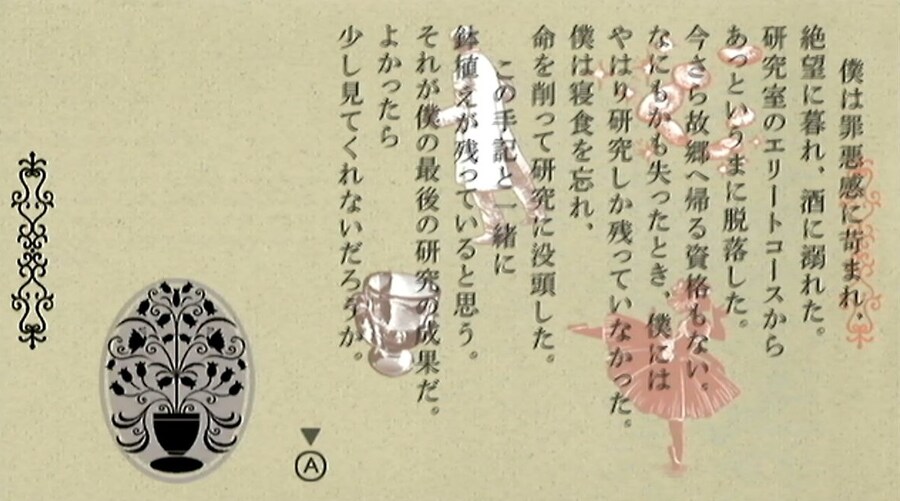 僕は罪悪感に苛まれ、
絶望に暮れ、酒に溺れた。
研究室のエリートコースから
あっというまに脱落した。
今さら故郷へ帰る資格もない。
なにもかも失ったとき、僕には
やはり研究しか残っていなかった。
僕は寝食を忘れ、
命を削って研究に没頭した。
この手記と一緒に
鉢植えが残っていると思う。
それが僕の最後の研究の成果だ。
よかったら
少し見てくれないだろうか。
A